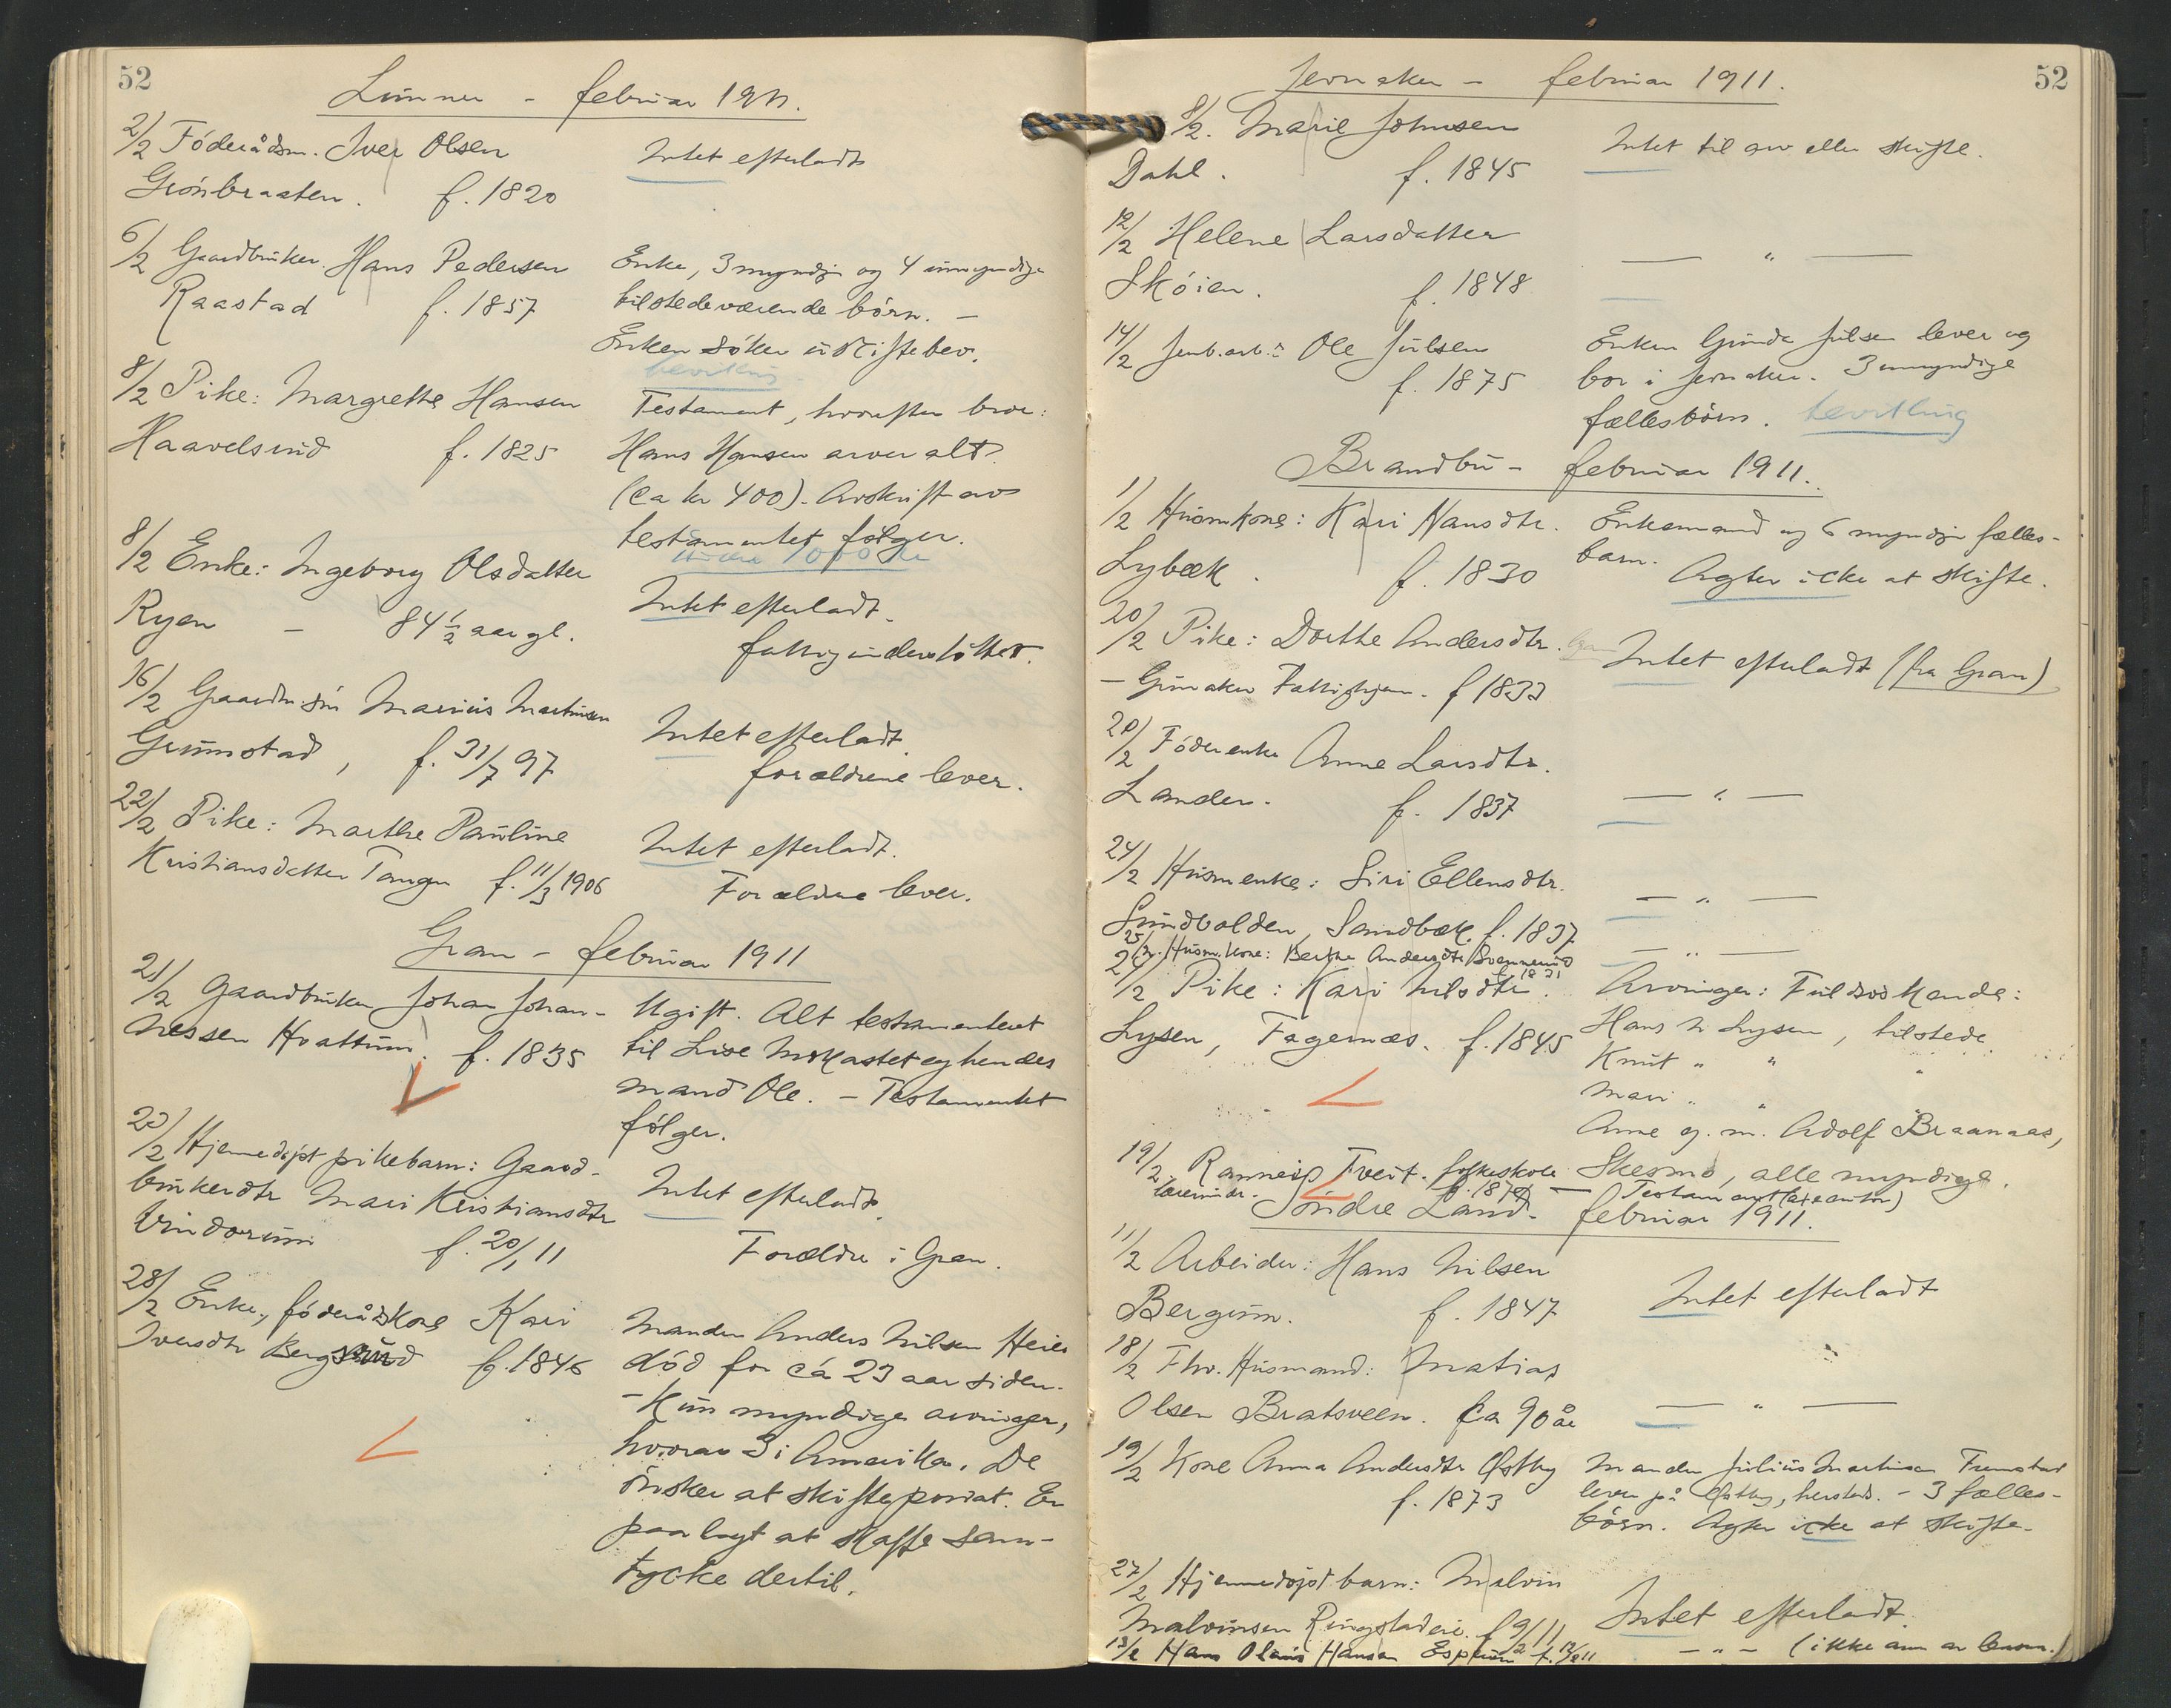 52
Lunner - februar 1911.
2/2 Föderådsm. Iver Olsen
Grönbraaten. f. 1820
Intet efterladt
6/2 Gaardbruker Hans Pedersen
Raastad f. 1857
Enke, 3 myndige og 4 umyndige
tilstedeværende börn. -
Enken söker uskiftebev.
bevilling
8/2 Pike: Margrethe Hansen
Haavelsrud f. 1825
Testament, hvorefter bror:
Hans Hansen arver alt.
(ca kr 400). Avskrift av
testamentet følger.
under 1000 kr
8/2 Enke: Ingeborg Olsdatter
Ryen - 84 1/2 aar gl.
Intet efterladt.
fattigunderstöttet.
16/2 Gaardbr. sön Marius Martinsen
Grinnstad, f. 31/7 97
Intet efterladt.
forældrene lever.
22/2 Pike: Marthe Pauline
Kristiansdatter Tangen f. 11/3 1906
Intet efterladt.
Forældre lever.
Gran - februar 1911
21/2 Gaardbruker Johan Johan-
nessen Hvattum. f. 1835
Ugift. Alt testamenteret
til Lise Moskastet og hendes
mand Ole. - Testamentet
fölger.
23/2 Hjemmedöpt pikebarn: Gaard-
brukerdtr Mari Kristiansdtr
Vindorum f. 20/1 11
Intet efterladt.
Forældre i Gran.
28/2 Enke, föderådskone Kari
Iversdtr Bergsrud f. 1846
Manden Anders Nilsen Heier
död for ca 23 aar siden.
- Kun myndige arvinger,
hvorav 3 i Amerika. De
önsker at skifte privat. Er
paalagt at skaffe sam-
tycke dertil.
52
Jevnaker - februar 1911.
8/2. Marie Johnsen
Dahl. f. 1845
Intet til arv eller skifte.
12/2 Helene Larsdatter
Sköien. f. 1848
— " —
14/2 Jernb.arb.: Ole Julsen
f. 1875
Enken Gunda Julsen lever og
bor i Jevnaker. 3 umyndige
fællesbörn. bevilling
Brandbu - februar 1911.
1/2 Husmkone: Kari Hansdtr.
Lybæk. f. 1830
Enkemand og 6 myndige fælles-
barn.
Agter icke at skifte.
20/2 Pike: Dorthe Andersdtr. Gran
- Grinaker Fattighjem. f 1833
Intet efterladt (fra Gran)
20/2 Föderenke Anne Larsdtr.
Landen. f. 1837
— " —
24/2 Husmenke: Siri Ellensdtr.
Sundvolden, Sandbæk. f. 1837
— " —
25/2. Husm.kone: Berthe Andersdtr Svennerud
f 1831
— " —
26/2 Pike: Kari Nilsdtr.
Lysen, Fagernæs. f. 1845
Arvinger: Fuldsöskende:
Hans N. Lysen, tilstede
Knut " " "
Mari " " "
Anne g. m. Adolf Braanaas,
Skesmo, alle myndige.
19/2. Ranneig Tveit. folkeskole-
lærerinde. f. 1870 — Testament
Söndre Land - februar 1911.
11/2 Arbeider: Hans Nilsen
Bergum. f. 1847
Intet efterladt
18/2 Fhv. Husmand: Matias
Olsen Bratsveen. ca 90 år
— " —
19/2 Kone Anna Andersdtr Østby
f. 1873
Manden Julius Martinsen Framstad
lever på Østby, hersteds. - 3 fælles-
börn. Agter icke at skifte.
27/2 Hjemmedöpt barn: Malvin
Malvinsen Ringstadeie. f 9/2 11
Intet efterladt.
13/2 Hans Olaus Hansen Esplund f. 12/2 11
- " - (ikke arv av barn.)